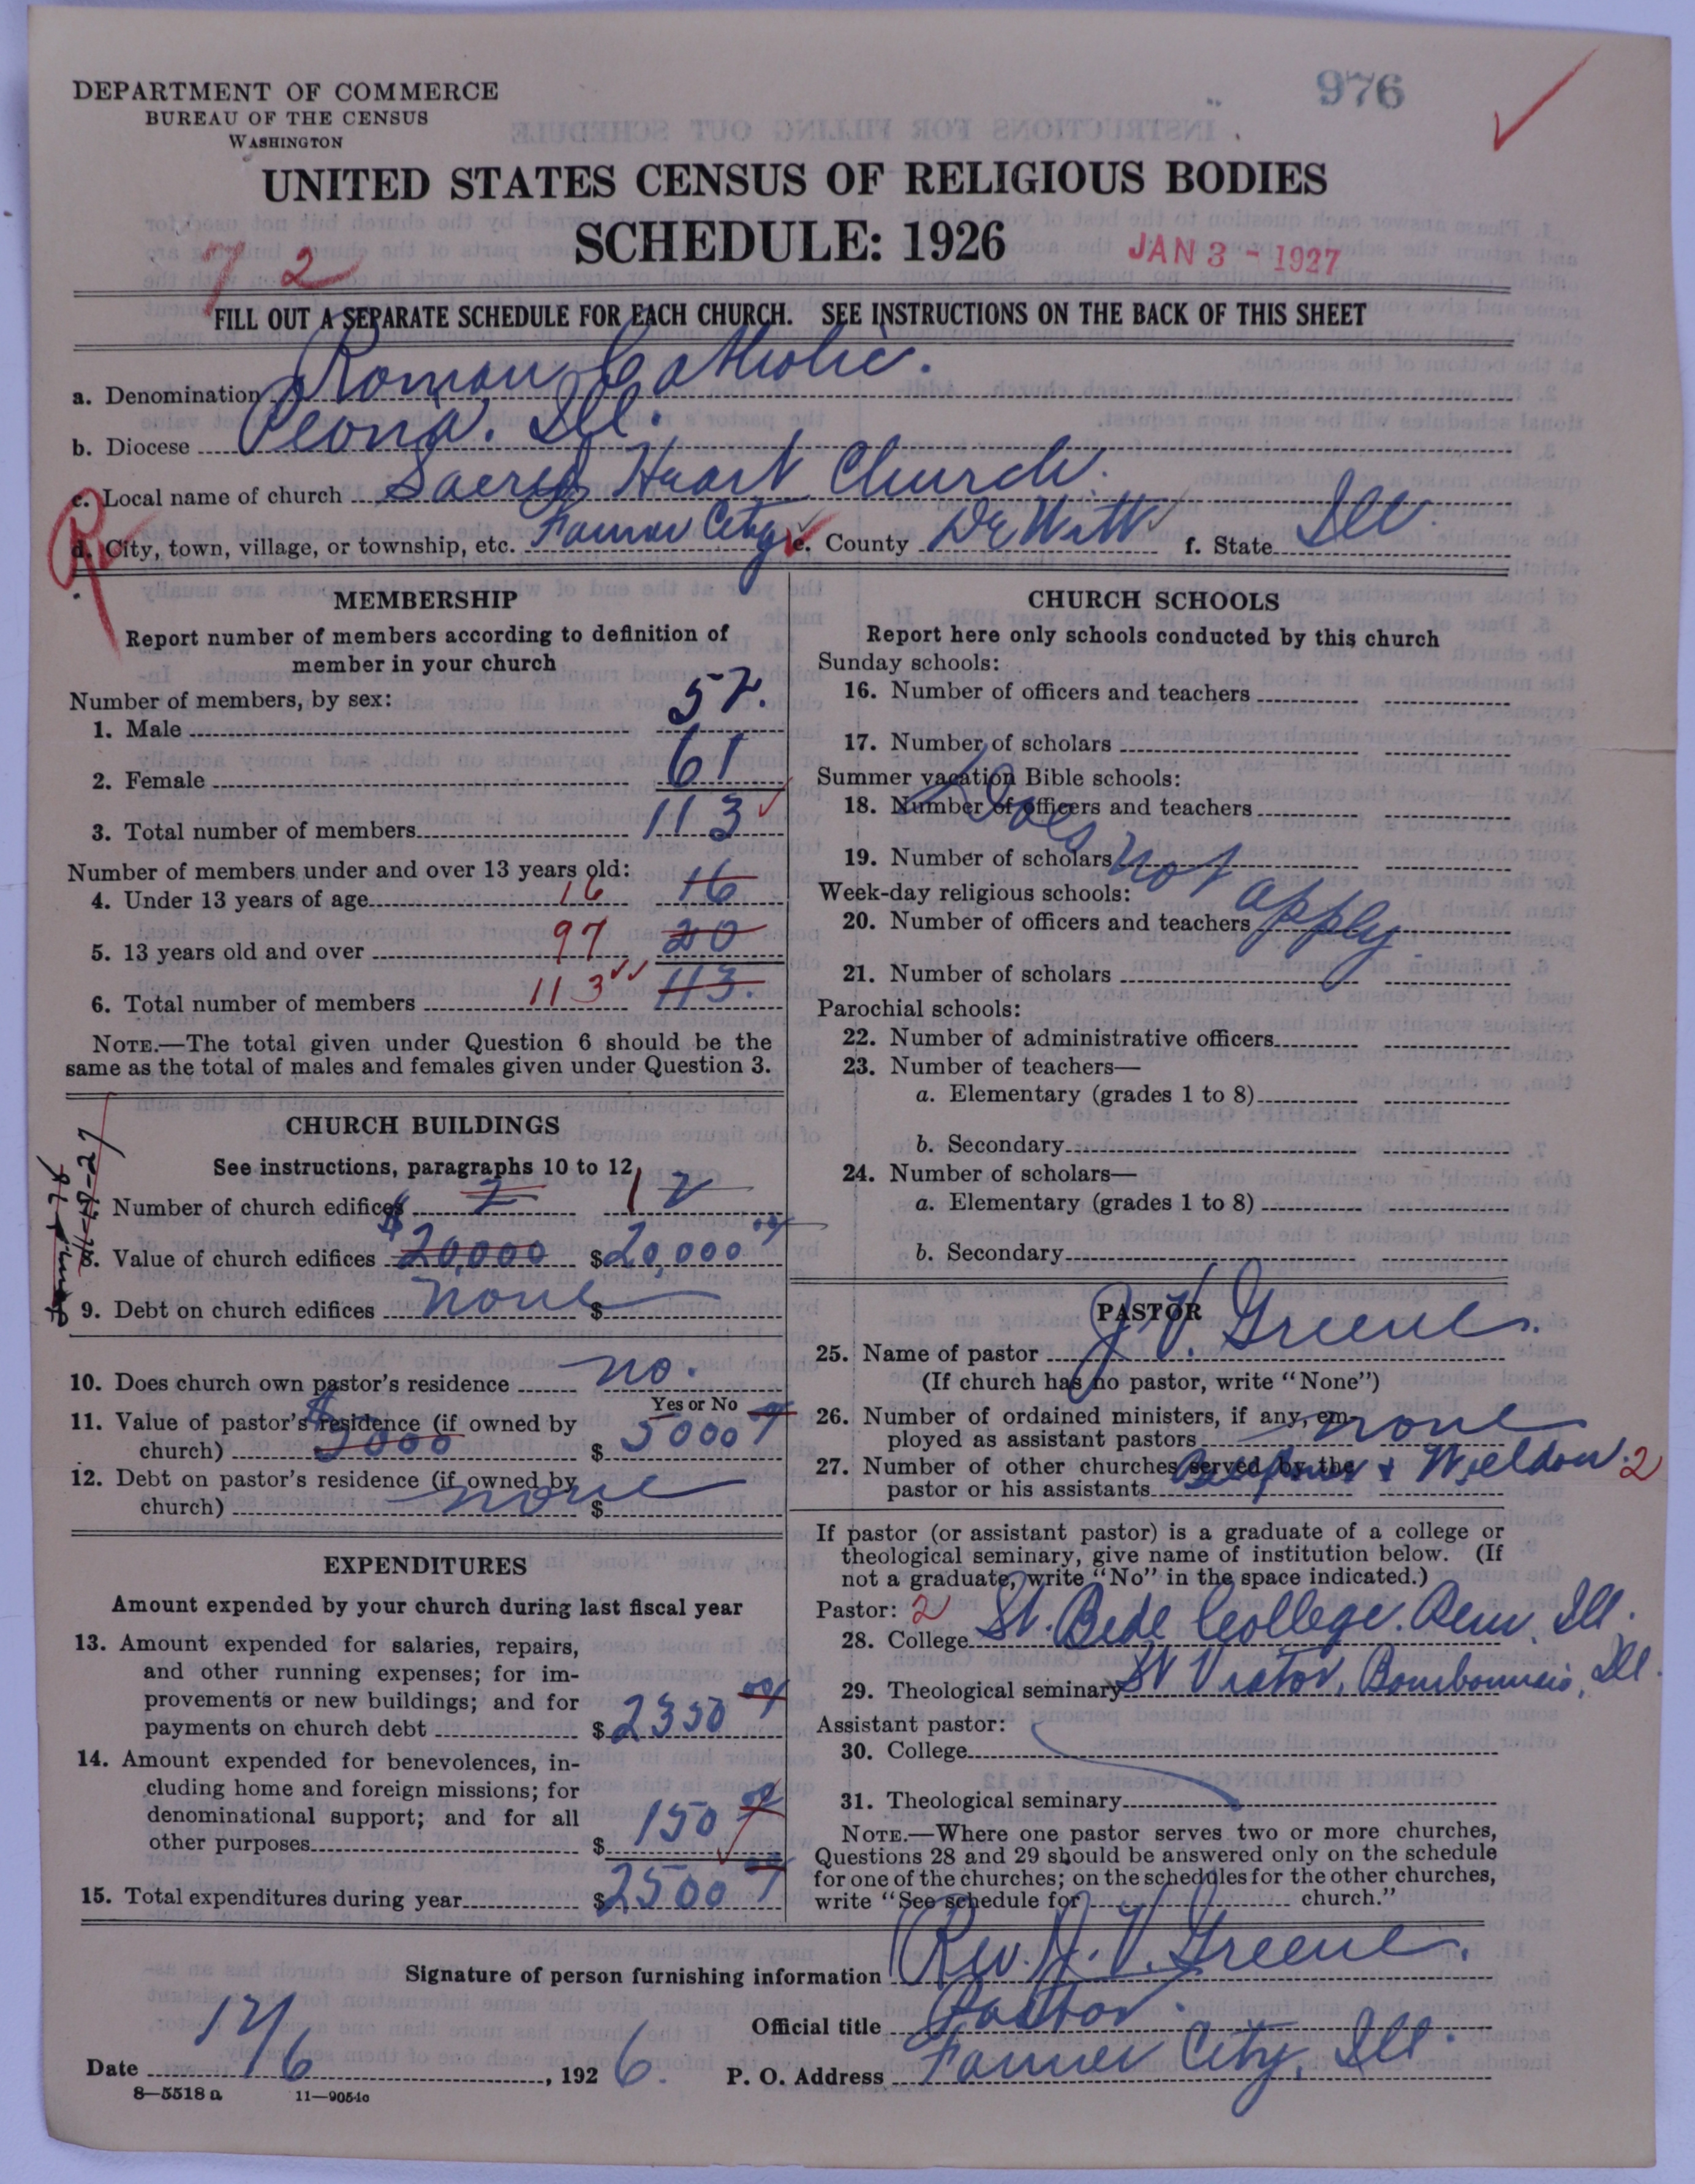 DEPARTMENT OF COMMERCE
BUREAU OF THE CENSUS
WASHINGTON
976
UNITED STATES CENSUS OF RELIGIOUS BODIES
SCHEDULE: 1926
JAN 3 - 1927
7 2
FILL OUT A SEPARATE SCHEDULE FOR EACH CHURCH. SEE INSTRUCTIONS ON THE BACK OF THIS SHEET
a. Denomination Roman Catholic.
b. Diocese Peoria. Ill.
c. Local name of church Sacred Heart Church.
R
d. City, town, village, or township, etc. Farmer City e. County De Witt f. State Ill.
MEMBERSHIP
Report number of members according to definition of
member in your church
Number of members, by sex:
1. Male 52.
2. Female 61
3. Total number of members 113
Number of members under and over 13 years old:
4. Under 13 years of age 16 16
5. 13 years old and over 97 20
6. Total number of members 113 113.
NOTE.—The total given under Question 6 should be the
same as the total of males and females given under Question 3.
CHURCH BUILDINGS
See instructions, paragraphs 10 to 12
7. Number of church edifices 2 1 2
8. Value of church edifices $20,000 $20,000 00
9. Debt on church edifices none $
10. Does church own pastor's residence no.
Yes or No
11. Value of pastor's residence (if owned by
church) $5000 $5000
12. Debt on pastor's residence (if owned by
church) none $
EXPENDITURES
Amount expended by your church during last fiscal year
13. Amount expended for salaries, repairs,
and other running expenses; for im-
provements or new buildings; and for
payments on church debt $2350 00
14. Amount expended for benevolences, in-
cluding home and foreign missions; for
denominational support; and for all
other purposes $150 00
15. Total expenditures during year $2500
CHURCH SCHOOLS
Report here only schools conducted by this church
Sunday schools:
16. Number of officers and teachers
17. Number of scholars
Summer vacation Bible schools:
18. Number of officers and teachers
19. Number of scholars
Does not apply
Week-day religious schools:
20. Number of officers and teachers
21. Number of scholars
Parochial schools:
22. Number of administrative officers
23. Number of teachers—
a. Elementary (grades 1 to 8)
b. Secondary
24. Number of scholars—
a. Elementary (grades 1 to 8)
b. Secondary
PASTOR
25. Name of pastor J. V. Greene.
(If church has no pastor, write "None")
26. Number of ordained ministers, if any, em-
ployed as assistant pastors none
27. Number of other churches served by the
pastor or his assistants & Weldon. 2
If pastor (or assistant pastor) is a graduate of a college or
theological seminary, give name of institution below. (If
not a graduate, write "No" in the space indicated.)
Pastor: 2
28. College St. Bede College. Peru. Ill.
29. Theological seminary St Viator, Bourbonnais, Ill.
Assistant pastor:
30. College
31. Theological seminary
NOTE.—Where one pastor serves two or more churches,
Questions 28 and 29 should be answered only on the schedule
for one of the churches; on the schedules for the other churches,
write "See schedule for church."
Signature of person furnishing information Rev. J. V. Greene.
Official title Pastor.
Date , 192 6. P. O. Address Farmer City, Ill.
8—5518 a 11—9054c